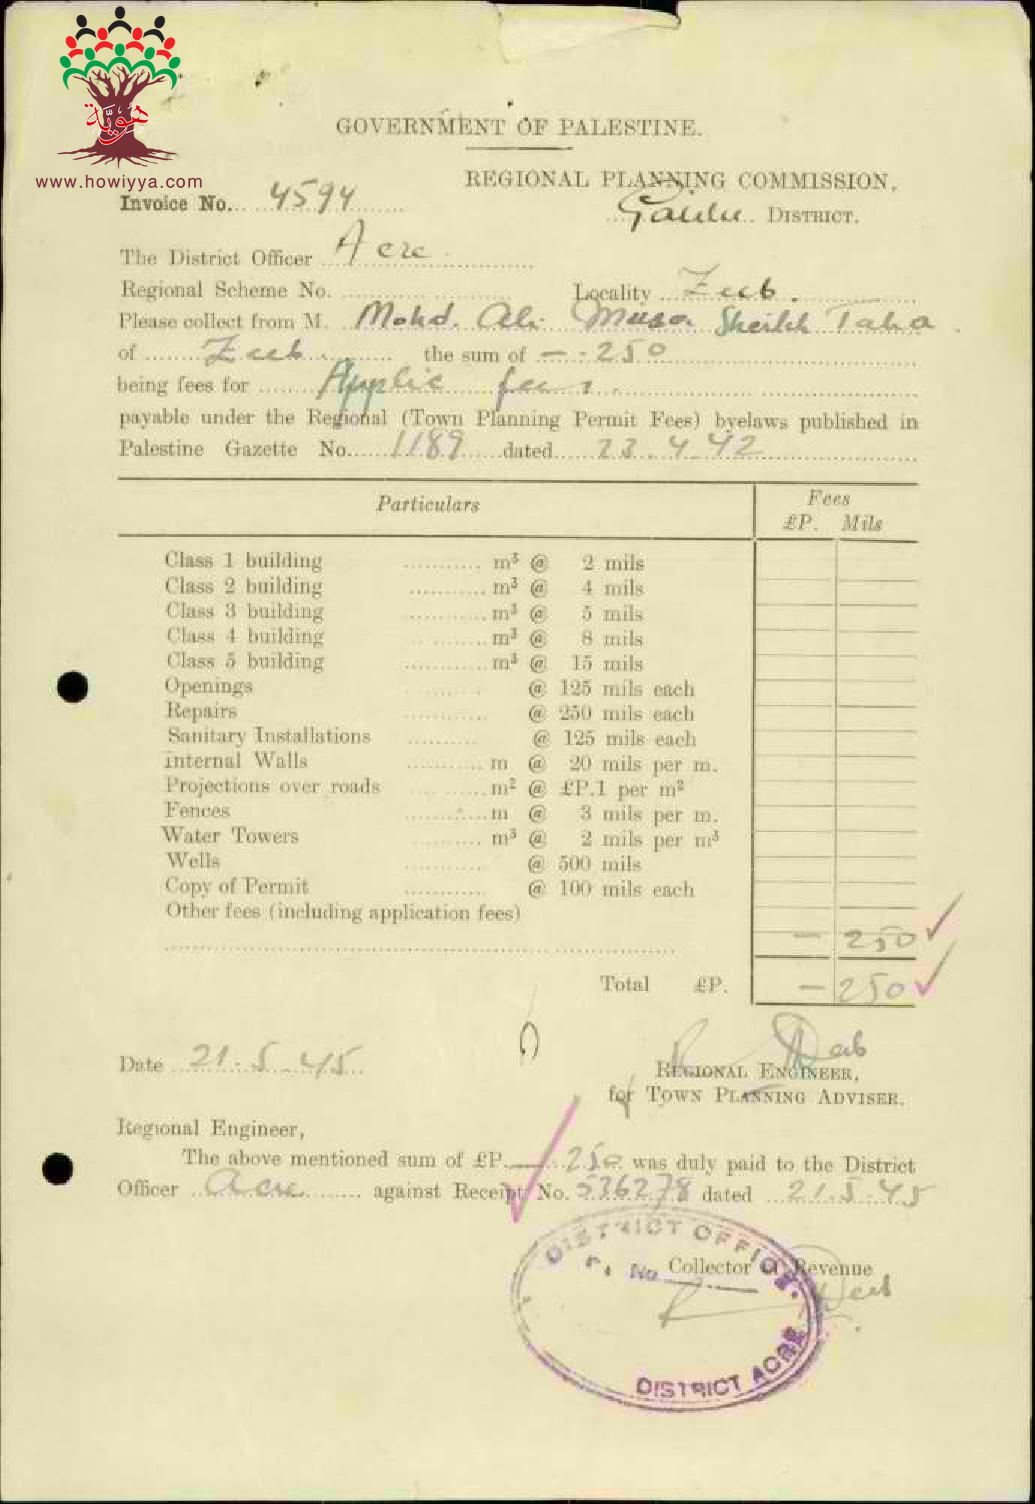 هوية
www.howiyya.com
GOVERNMENT OF PALESTINE.
REGIONAL PLANNING COMMISSION.
Invoice No. 4594
Galilee DISTRICT.
The District Officer Acre
Regional Scheme No. Locality Zeeb.
Please collect from M. Mohd. Ali Musa Sheikh Taha
of Zeeb the sum of - . 250
being fees for Applic fees.
payable under the Regional (Town Planning Permit Fees) byelaws published in
Palestine Gazette No. 1189 dated 23.4.42
Particulars Fees
£P. Mils
Class 1 building m³ @ 2 mils
Class 2 building m³ @ 4 mils
Class 3 building m³ @ 5 mils
Class 4 building m³ @ 8 mils
Class 5 building m³ @ 15 mils
Openings @ 125 mils each
Repairs @ 250 mils each
Sanitary Installations @ 125 mils each
Internal Walls m @ 20 mils per m.
Projections over roads m² @ £P.1 per m²
Fences m @ 3 mils per m.
Water Towers m³ @ 2 mils per m³
Wells @ 500 mils
Copy of Permit @ 100 mils each
Other fees (including application fees)
- 250 ✓
Total £P. - 250 ✓
Date 21.5.45
REGIONAL ENGINEER,
for TOWN PLANNING ADVISER.
Regional Engineer,
The above mentioned sum of £P. — 250 was duly paid to the District
Officer Acre against Receipt No. 536278 dated 21.5.45
DISTRICT OFFICE.
Collector of Revenue
No
DISTRICT ACRE